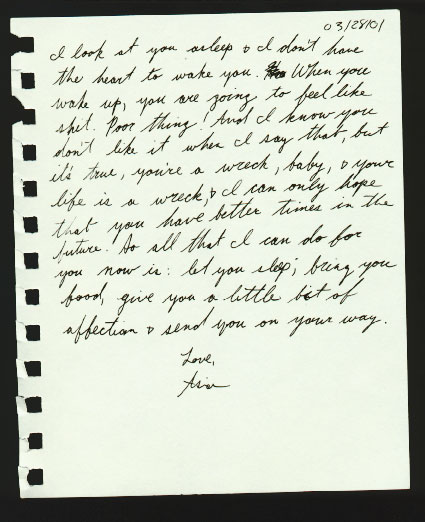 03/28/01
I look at you asleep & I don't have
the heart to wake you. When you
wake up, you are going to feel like
shit. Poor thing! And I know you
don't like it when I say that, but
it's true, you're a wreck, baby, & your
life is a wreck, & I can only hope
that you have better times in the
future. So all that I can do for
you now is: let you sleep, bring you
food, give you a little bit of
affection & send you on your way.
Love,
Asia